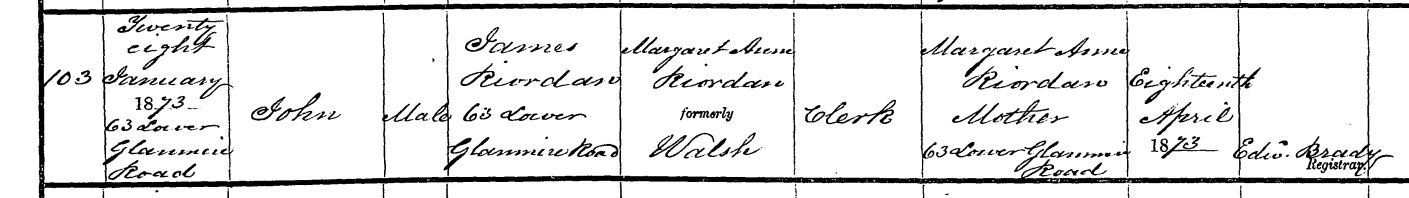 103
Twenty
eight
January
1873
63 Lower
Glanmire
Road
John
Male
James
Riordan
63 Lower
Glanmire Road
Margaret Anne
Riordan
formerly
Walsh
Clerk
Margaret Anne
Riordan
Mother
63 Lower Glanmire
Road
Eighteenth
April
1873
Edw. Brady
Registrar.